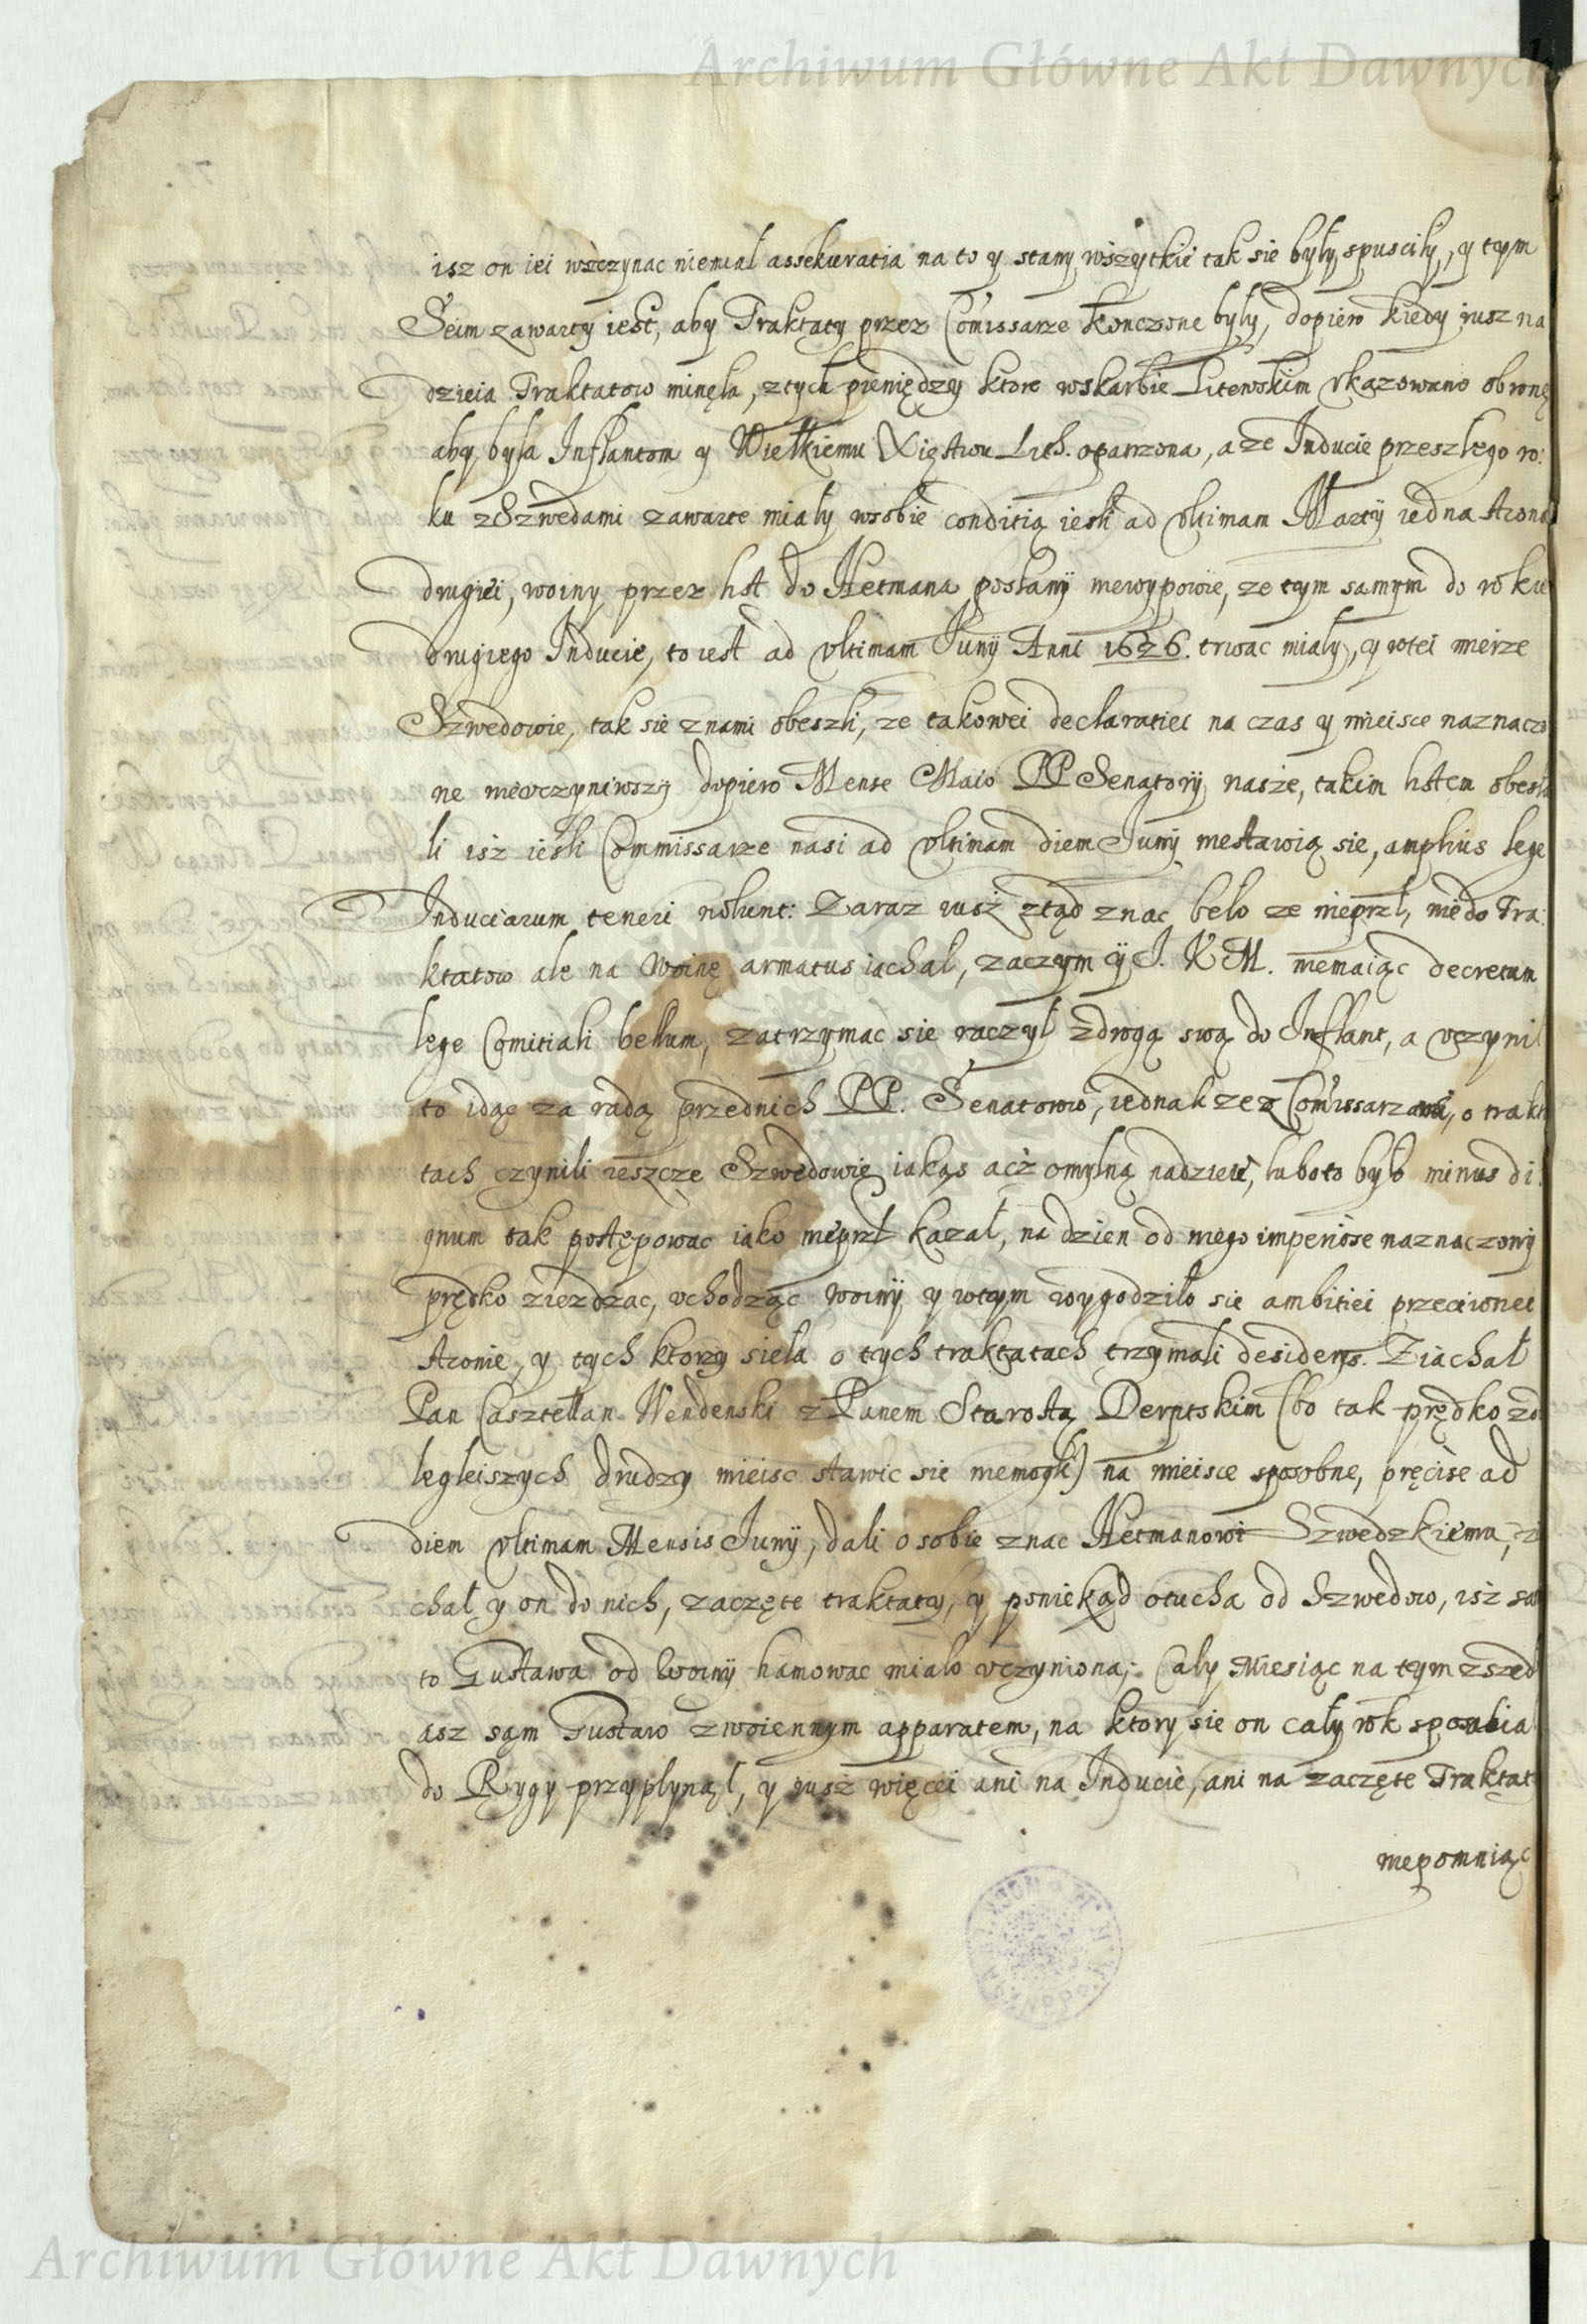 Archiwum Główne Akt Dawnych
isz on iei wszczynac niemial assekuratia na to y stany wszytkie tak sie były spusciły, y tym
Seim zawarty iest, aby Traktaty przez Comissarze konczone były, dopiero kiedy iusz na
dzieia Traktatow minęła, z tych pieniędzy ktore w skarbie Litewskim vkazowano obronę
aby była Inflantom y Wielkiemu Xięstwu Lith. opatrzona, a ze Inducie przeszłego ro:
ku z Szwedami zawarte miały w sobie conditią iesli ad vltimam Martij iedna strona
drugiei, woiny przez list do Hetmana posłany niewypowie, ze tym samym do roku
drugiego Inducie, to iest ad vltimam Junij Anni 1626. trwac miały, y w tei mierze
Szwedowie, tak sie z nami obeszli, ze takowei declaratiei na czas y mieisce naznaczo
ne nieuczyniwszy dopiero Mense Maio PP Senatory nasze, takim listem obesła
li isz iesli Commissarze nasi ad vltimam diem Junij niestawią sie, amplius lege
Induciarum teneri nolunt: Zaraz iusz ztąd znac beło ze nieprzl, nie do Tra:
ktatow ale na Woinę armatus iachał, zaczym y J. K M. niemaiąc decretum
lege Comitiali bellum, zatrzymac sie raczył z drogą swą do Inflant, a vczynił
to idąc za radą przednich PP. Senatorow, iednak ze z Comissarzami, o trakt
tach czynili ieszcze Szwedowie iakąs acz omylną nadzieię, lubo to było minus di
gnum tak postępowac iako nieprzl kazał, na dzien od niego imperiose naznaczony
prędko ziezdzac, vchodząc woiny y w tym wygodziło sie ambitiei przeciwnei
stronie, y tych ktorzy sieła o tych traktatach trzymali desiderijs. Ziachał
Pan Casztellan Wendenski z Panem Starostą Derptskim (bo tak prędko z od
legleiszych drudzy mieisc stawic sie niemogli) na mieisce sposobne, pręcise ad
diem vltimam Mensis Junij, dali o sobie znac Hetmanowi Szwedzkiemu, zi
chał y on do nich, zaczęte traktaty, y poniekąd otucha od Szwedow, isz sam
to Gustawa od Woiny hamowac miało vczyniona; Cały Miesiąc na tym zszedł
asz sąm Gustaw z woiennym apparatem, na ktory sie on cały rok sposabiał
do Rygy przypłynął, y iusz więcei ani na Inducie, ani na zaczęte Traktat
niepomniąc
Archiwum Główne Akt Dawnych